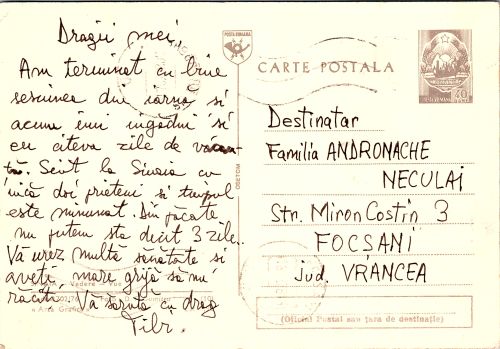 Dragii mei,
Am terminat cu bine
sesiunea din iarnă si
acum îmi îngădui si
eu cîteva zile de vacan
tă. Sînt la Sinaia cu
încă doi prieteni si timpul
este minunat. Din păcate
nu putem sta decît 3 zile.
Vă urez multă sănătate si
aveți mare grijă să nu
răciți. Vă sărută cu drag
Tibi.
Vedere
Arta Grafică
POSTA ROMANA
CARTE POSTALA
40
Destinatar
Familia ANDRONACHE
NECULAI
Str. Miron Costin 3
FOCSANI
jud. VRANCEA
(Oficiul Postal sau țara de destinație)